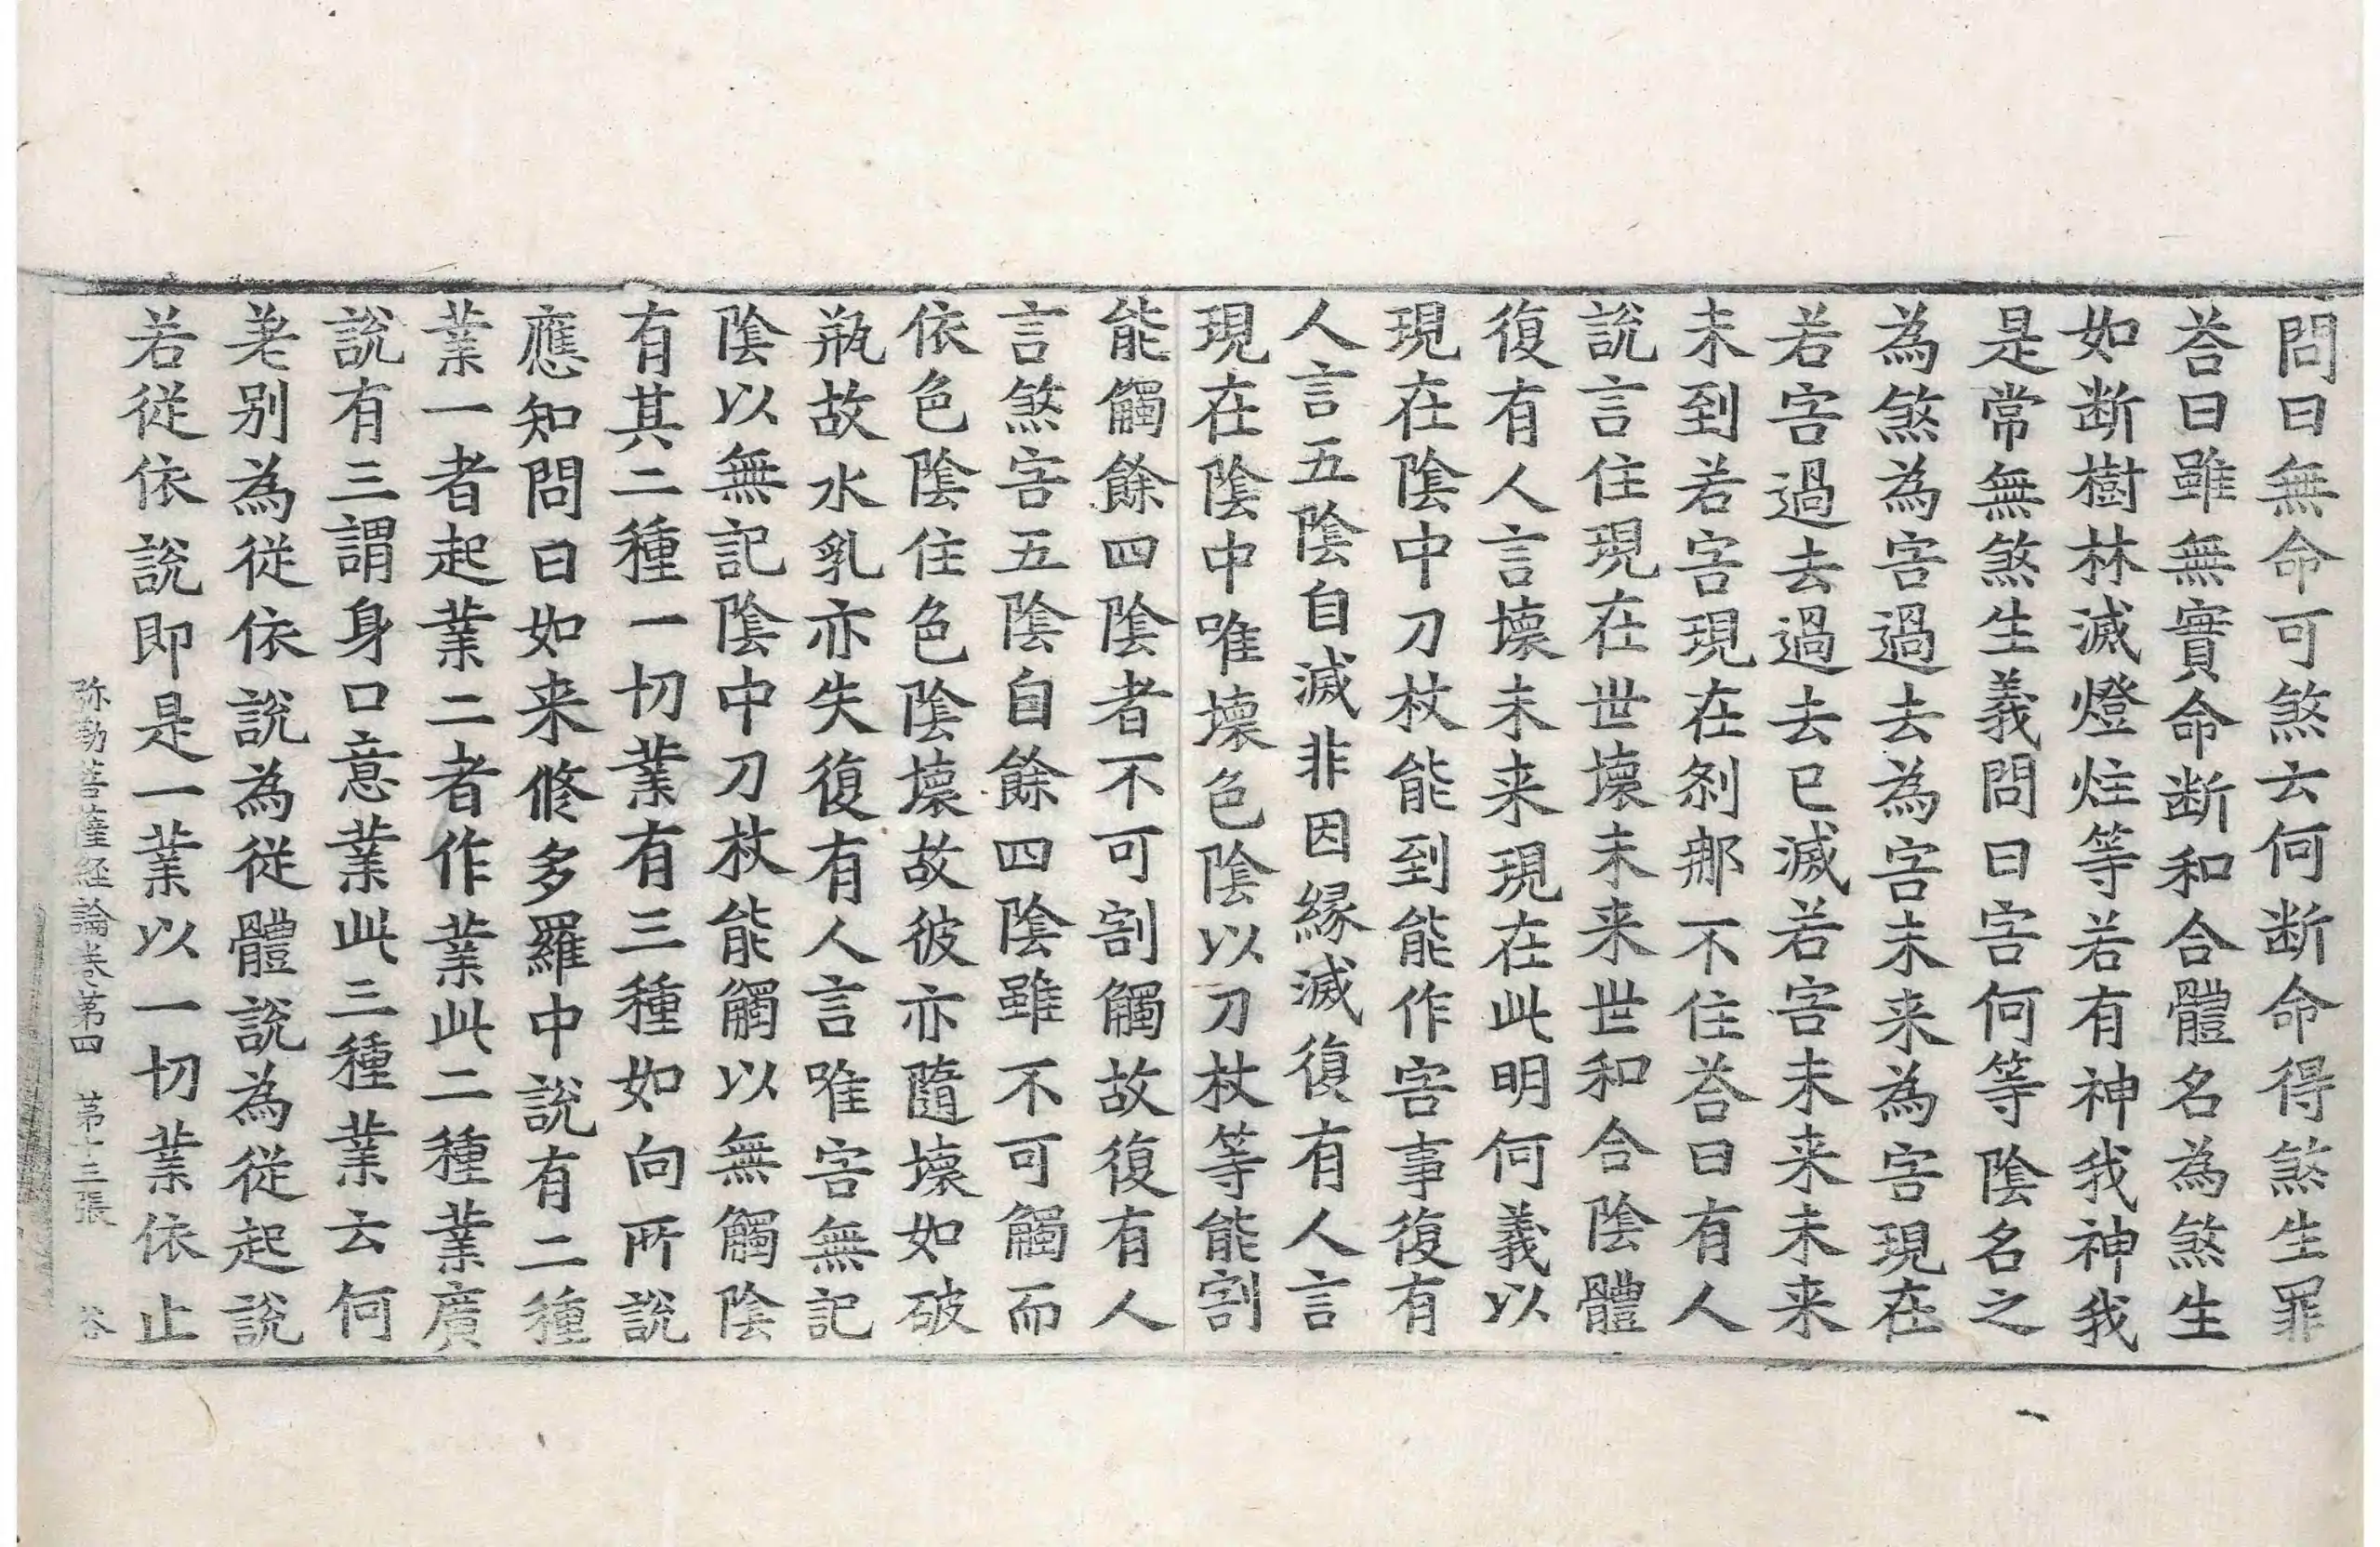 問曰無命可煞云何断命得煞生罪
荅曰雖無實命断和合體名為煞生
如断樹林滅燈炷等若有神我神我
是常無煞生義問曰害何等陰名之
為煞為害過去為害未来為害現在
若害過去過去已滅若害未来未来
未到若害現在刹那不住荅曰有人
說言住現在世壞未来世和合陰體
復有人言壞未来現在此明何義以
現在陰中刀杖能到能作害事復有
人言五陰自滅非因縁滅復有人言
現在陰中唯壞色陰以刀杖等能割
能觸餘四陰者不可割觸故復有人
言煞害五陰自餘四陰雖不可觸而
依色陰住色陰壞故彼亦隨壞如破
瓶故水乳亦失復有人言唯害無記
陰以無記陰中刀杖能觸以無觸陰
有其二種一切業有三種如向所說
應知問曰如来修多羅中說有二種
業一者起業二者作業此二種業廣
說有三謂身口意業此三種業云何
差別為從依說為從體說為從起說
若從依說即是一業以一切業依止
弥勒菩薩経論卷第四　第十三張